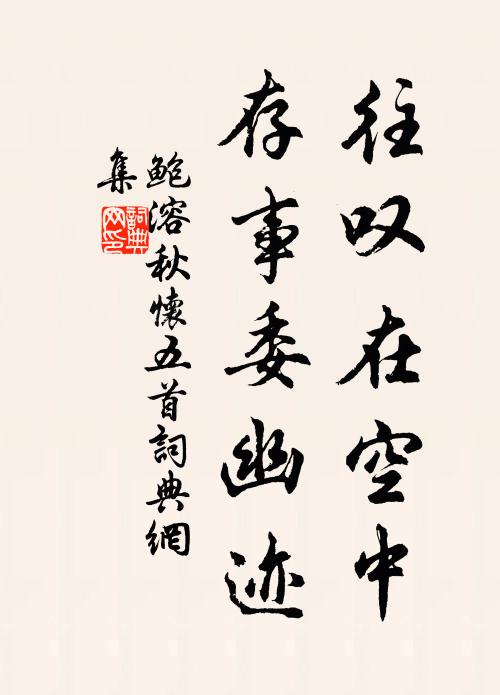 往叹在空中
存事委幽迹
鲍溶秋懷五首詞典網
集
詞典网印